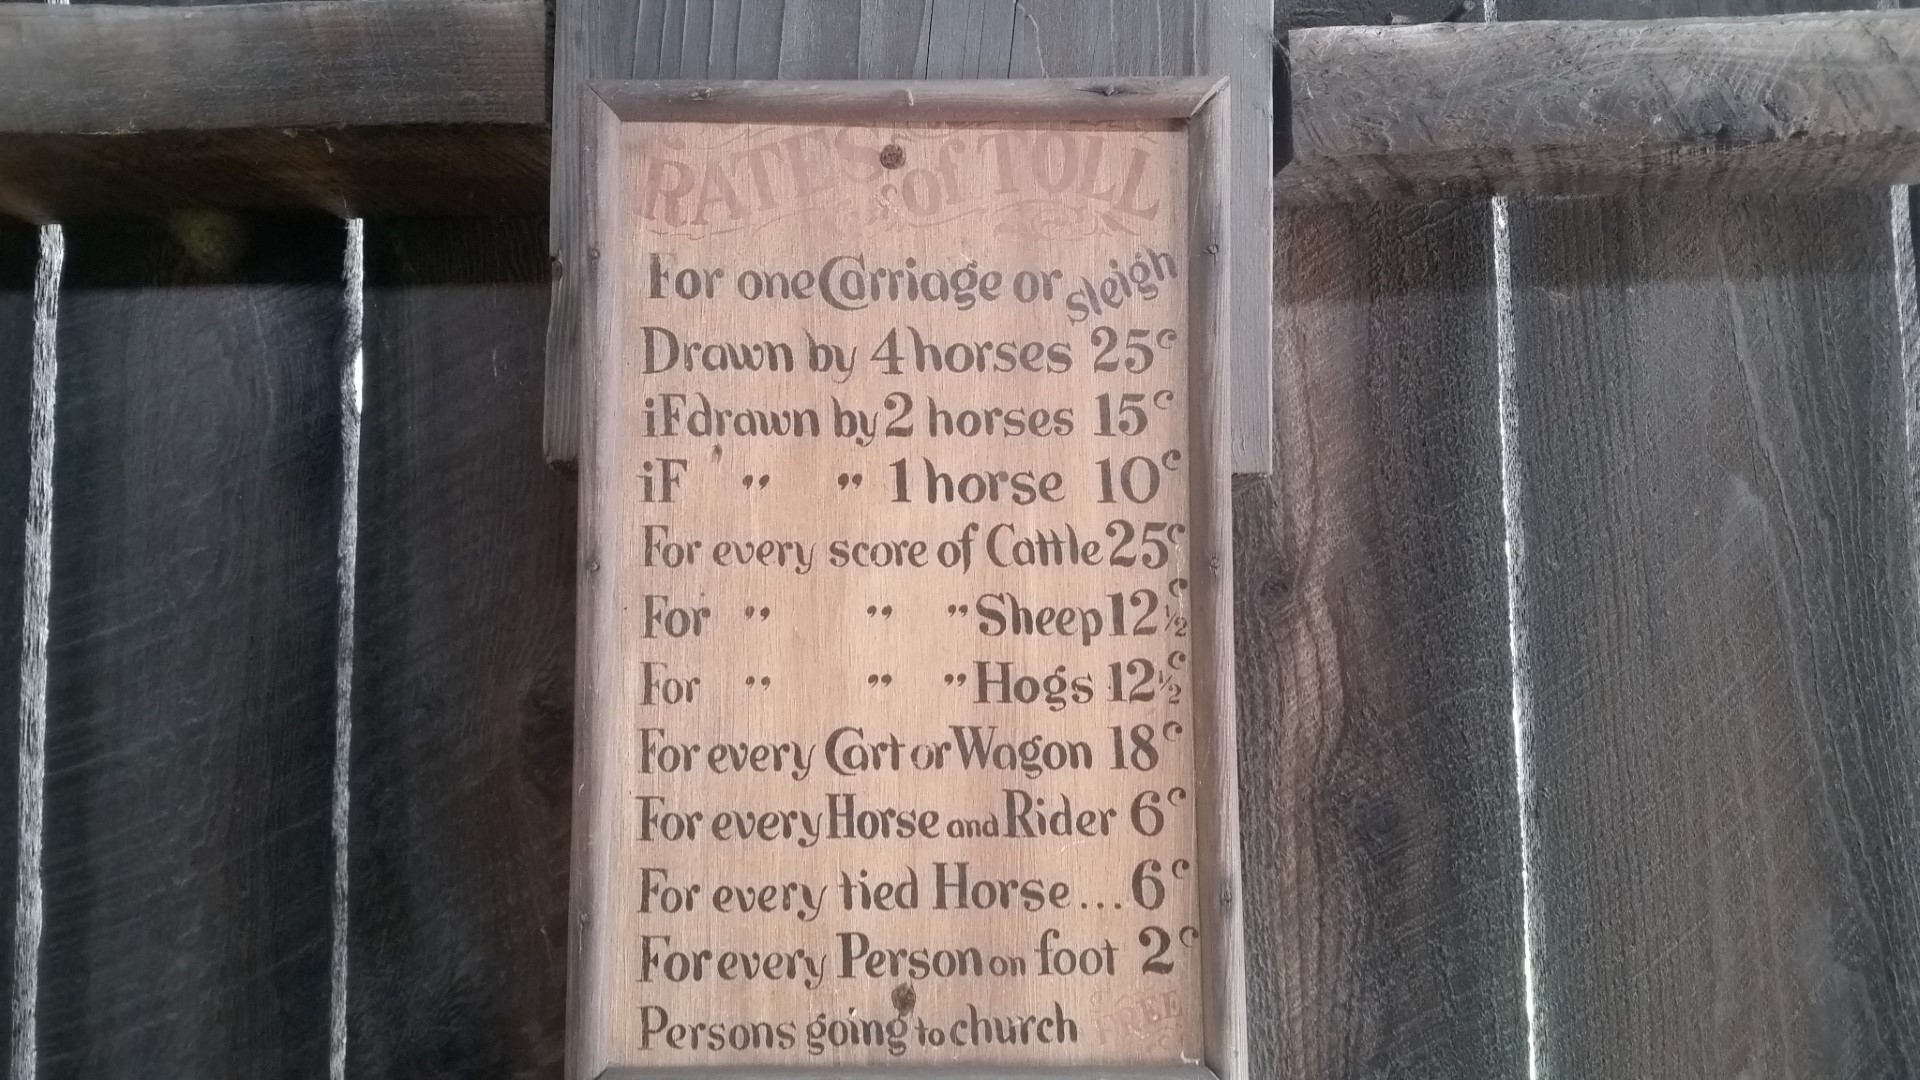 RATES of TOLL
For one Carriage or sleigh
Drawn by 4 horses 25c
iF drawn by 2 horses 15c
iF " " 1 horse 10c
For every score of Cattle 25c
For " " " Sheep 12½c
For " " " Hogs 12½c
For every Cart or Wagon 18c
For every Horse and Rider 6c
For every tied Horse... 6c
For every Person on foot 2c
Persons going to church FREE